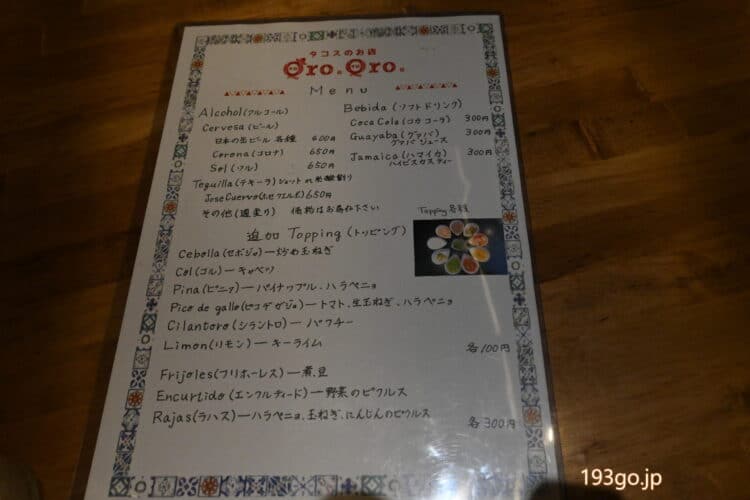 タコスのお店
Oro.Oro.
Menu
Alcohol(アルコール)
Cervesa(ビール)
日本の缶ビール 各種 600円
Corona(コロナ) 650円
Sol(ソル) 650円
Tequilla(テキーラ)ショット or 炭酸割り
Jose Cuervo(ホセ クエルボ) 650円
その他(週変り) 価格はお尋ね下さい
Bebida(ソフトドリンク)
Coca Cola(コカコーラ) 300円
Guayaba(グァバ) 300円
グァバ ジュース
Jamaica(ハマイカ) 300円
ハイビスカスティー
Topping 各種
追加 Topping(トッピング)
Cebolla(セボジャ)ー炒め玉ねぎ
Col(コル)ーキャベツ
Pina(ピニャ)ーパイナップル、ハラペニョ
Pico de gallo(ピコデガジョ)ートマト、生玉ねぎ、ハラペニョ
Cilantoro(シラントロ)ーパクチー
Limon(リモン)ーキーライム
各100円
Frijoles(フリホーレス)ー煮豆
Encurtido(エンクルティード)ー野菜のピクルス
Rajas(ラハス)ーハラペニョ、玉ねぎ、にんじんのピクルス
各300円
193go.jp